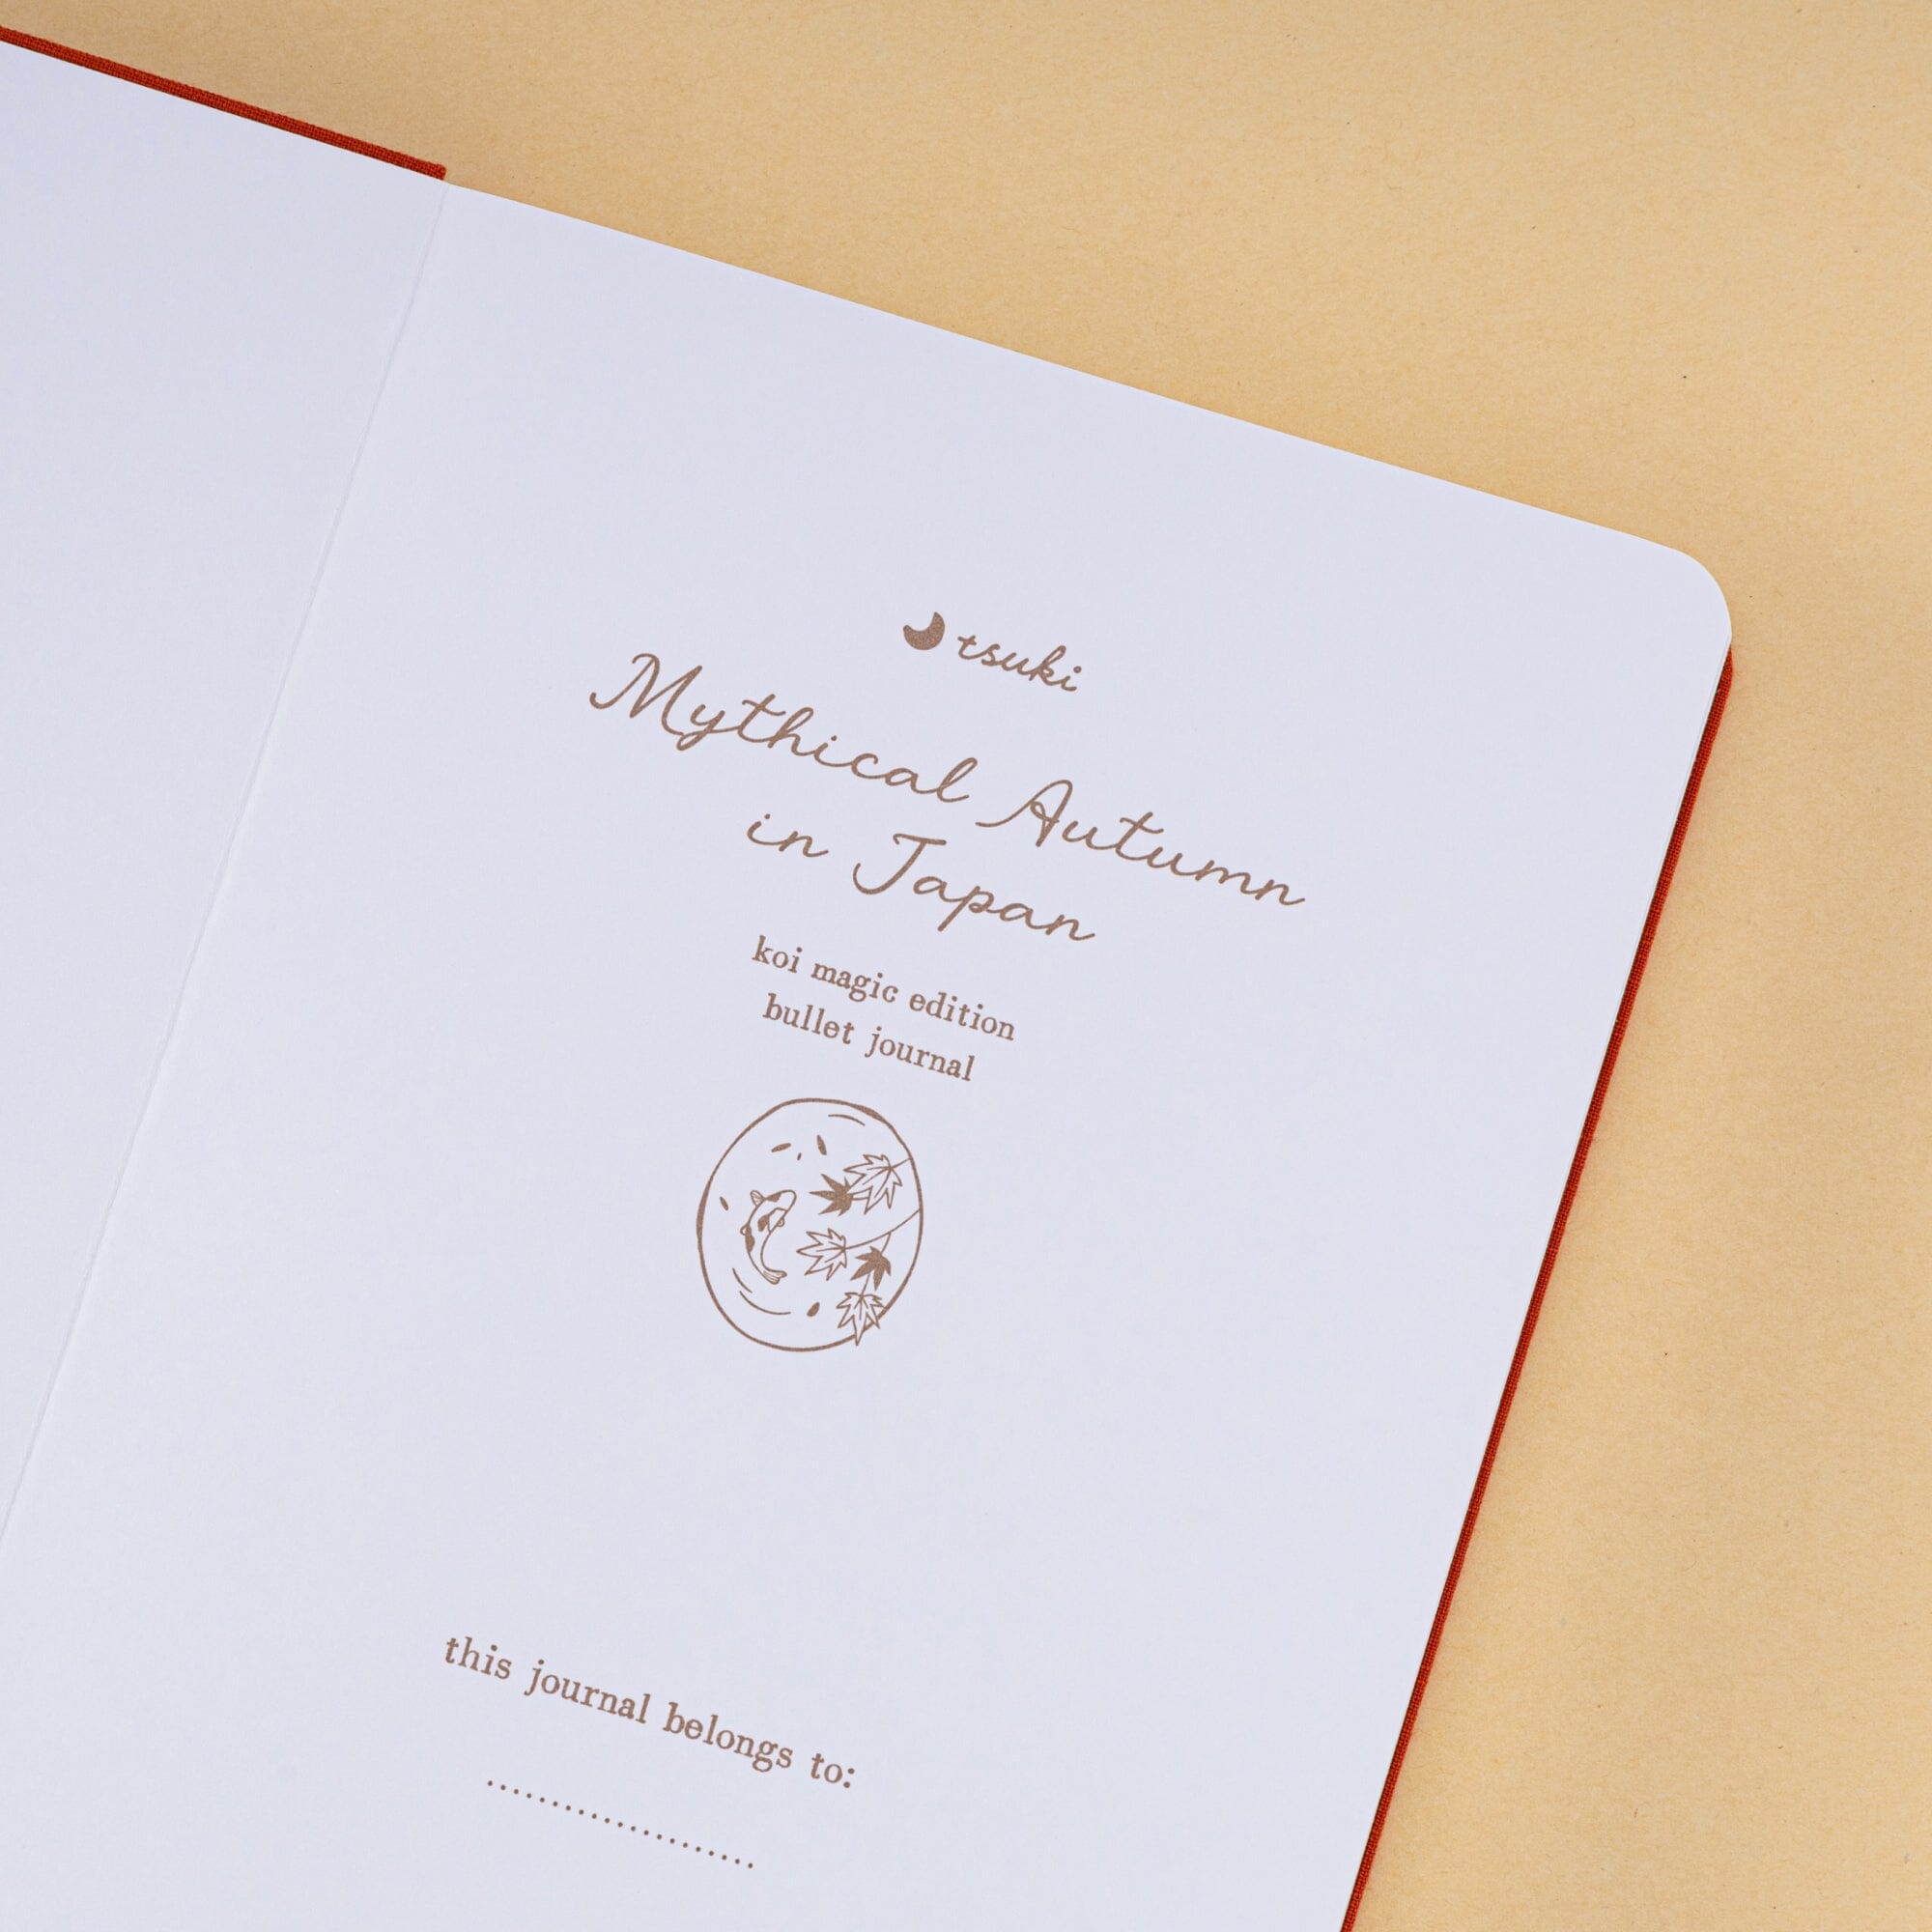 tsuki
Mythical Autumn
in Japan
koi magic edition
bullet journal
this journal belongs to:
.....................